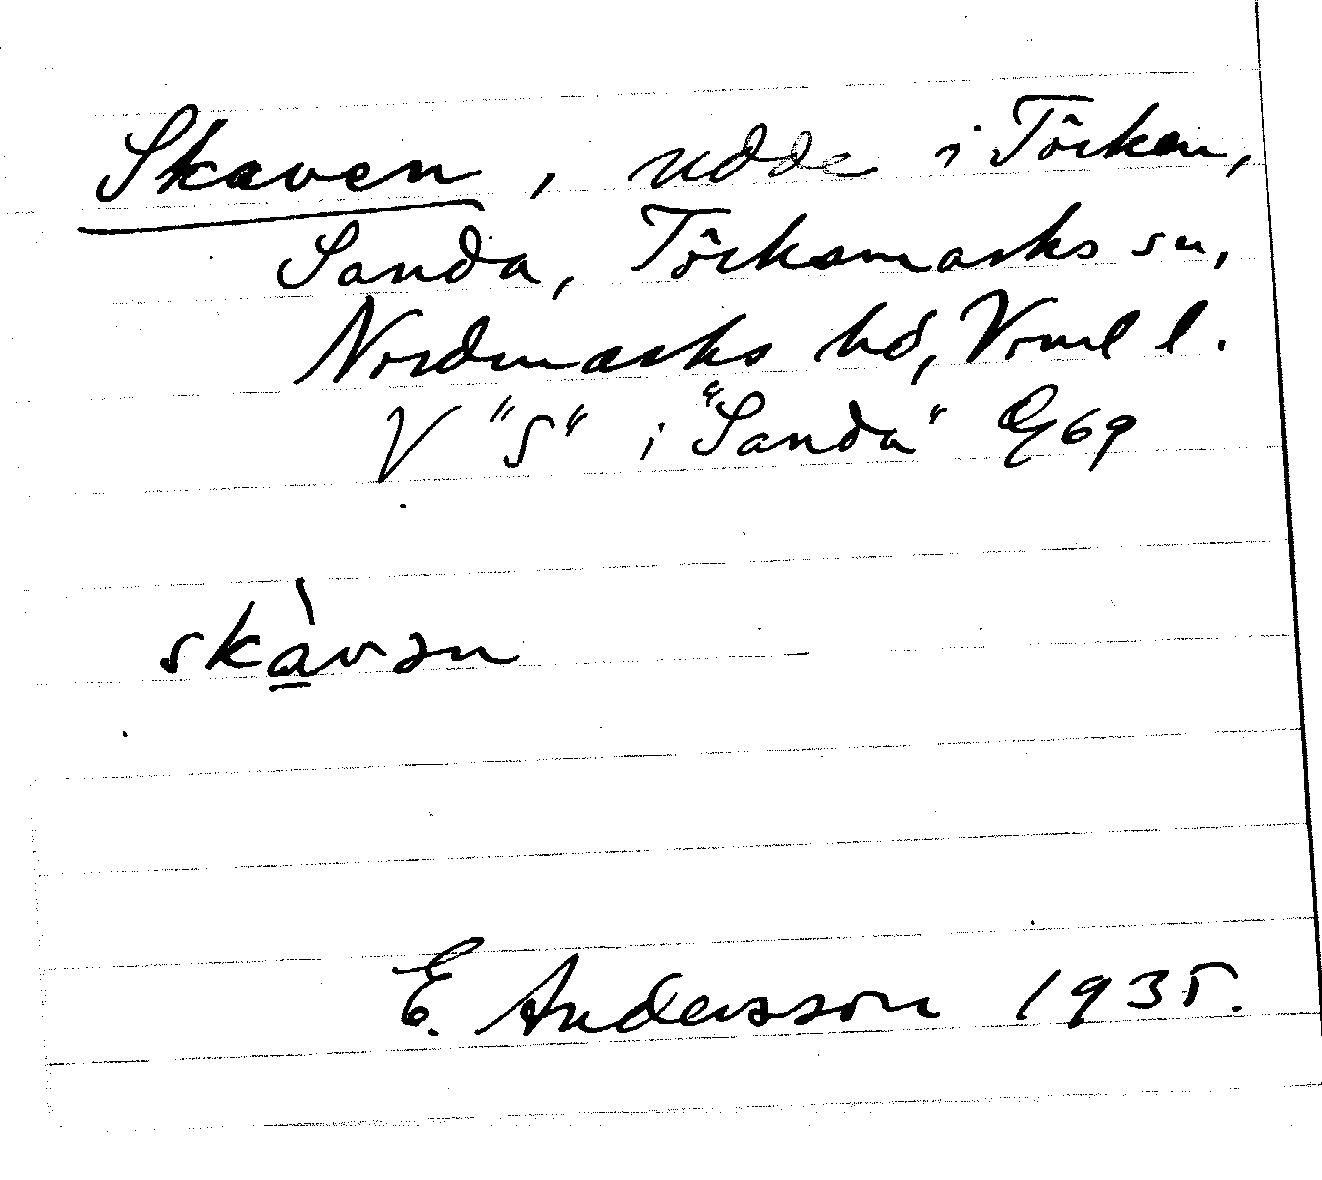 Skaven, udde i Töcken,
Sanda, Töcksmarks sn,
Nordmarks hd, Vrml l.
V "S" i "Sanda" Eg 69
skàvən
E. Andersson 1935.